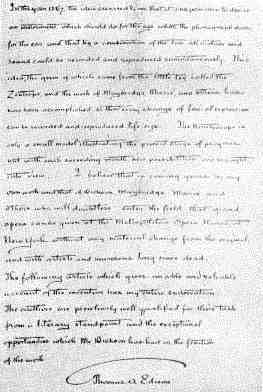 In the year 1887, the idea occurred to me that it was possible to devise
an instrument which should do for the eye what the phonograph does
for the ear, and that by a combination of the two all motion and
sound could be recorded and reproduced simultaneously. This
idea, the germ of which came from the little toy called the
Zoetrope, and the work of Muybridge, Marié, and others has
been accomplished, so that every change of facial expression
can be recorded and reproduced life size. The Kinetoscope is
only a small model illustrating the present stage of progress
but with each succeeding month new possibilities are brought
into view. I believe that in coming years by my
own work and that of Dickson, Muybridge, Marié and
others who will doubtless enter the field that grand
opera can be given at the Metropolitan Opera House at
New York without any material change from the original,
and with artists and musicians long since dead.
The following article which gives an able and reliable
account of the invention has my entire endorsation.
The authors are peculiarly well qualified for their task
from a literary standpoint and the exceptional
opportunities which Mr Dickson has had in the fruition
of the work.
Thomas A Edison